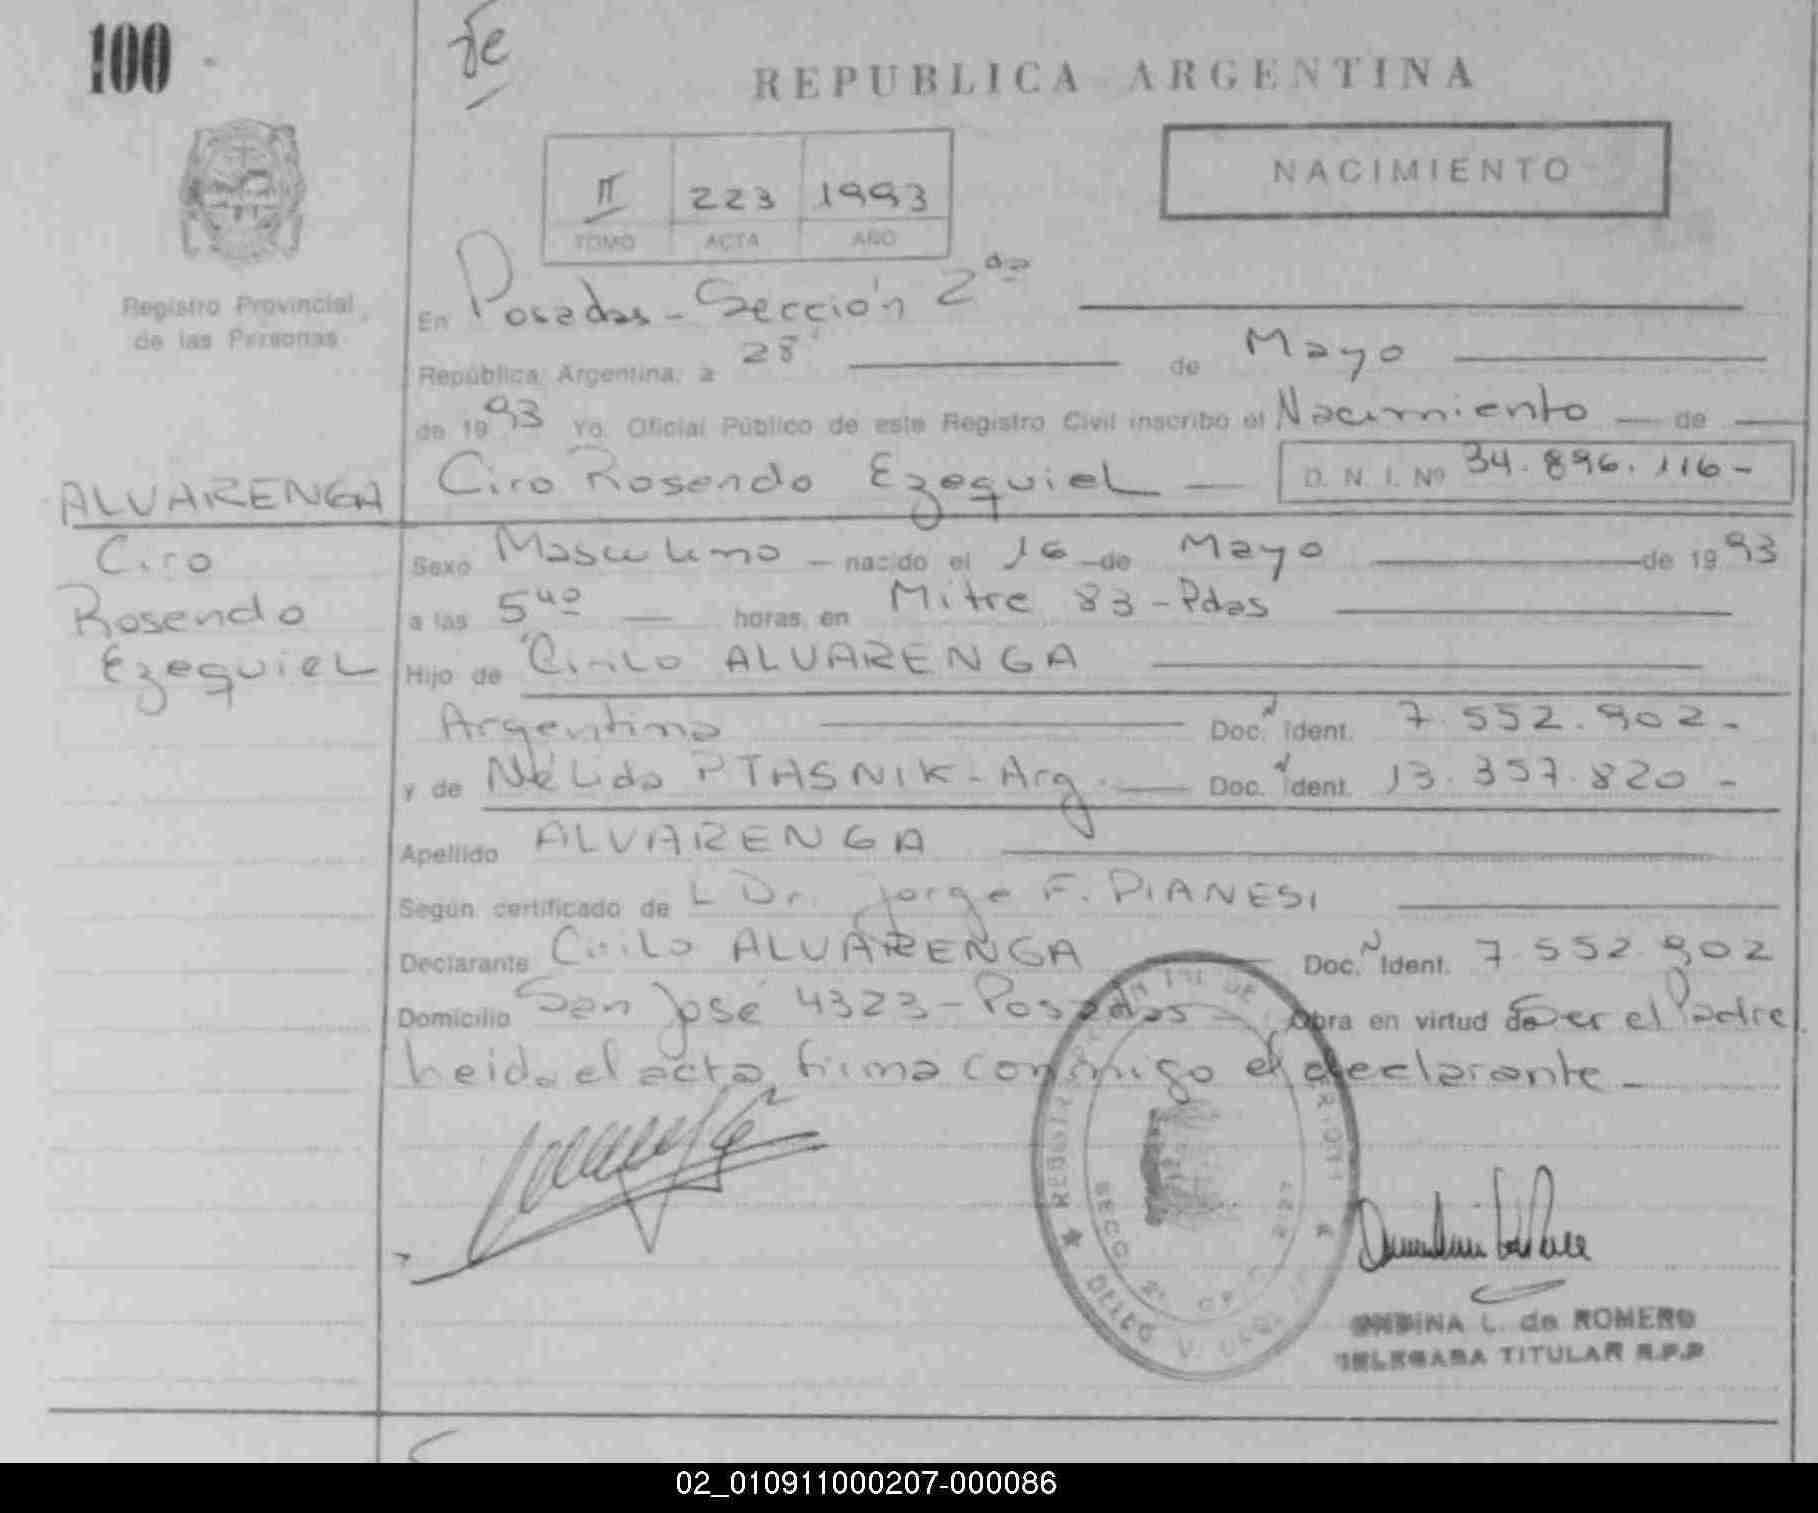 100
REPUBLICA ARGENTINA
II 223 1993
TOMO ACTA AÑO
NACIMIENTO
Registro Provincial
de las Personas
En Posadas - Sección 2da
República Argentina, a 28 de Mayo
de 1993 Yo, Oficial Público de este Registro Civil inscribo el Nacimiento de
Ciro Rosendo Ezequiel D. N. I. Nº 34.896.116-
ALVARENGA
Ciro
Rosendo
Ezequiel
Sexo Masculino nacido el 16 de Mayo de 1993
a las 5 40 horas, en Mitre 83 - Pdas
Hijo de Cirilo ALVARENGA
Argentino Doc. Ident. 7.552.902-
y de Nélida PTASNIK - Arg. Doc. Ident. 13.357.820-
Apellido ALVARENGA
Según certificado de L Dr. Jorge F. PIANESI
Declarante Cirilo ALVARENGA Doc. Ident. 7.552.902
Domicilio San José 4323 - Posadas Obra en virtud de Ser el Padre
Leida el acta, firma conmigo el declarante -
L. de ROMERO
DELEGADA TITULAR R.P.P
02_010911000207-000086